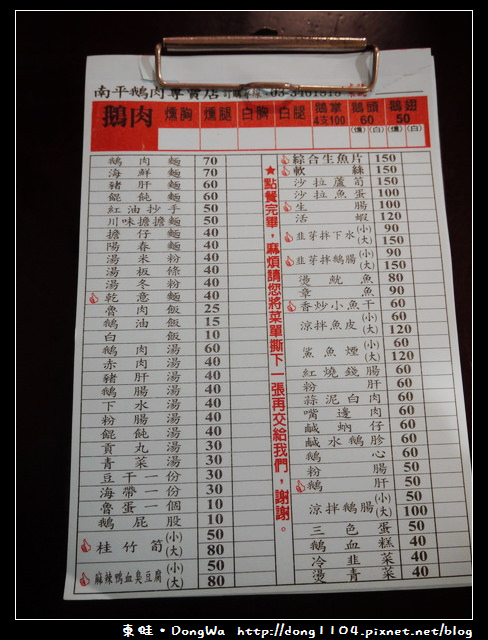 南平鵝肉專賣店
鵝肉 燻胸 燻腿 白胸 白腿 鵝掌 4支100 鵝頭 60 (燻)(白) 鵝翅 50 (燻)(白)
鵝肉麵 70
海鮮麵 70
豬肝麵 60
餛飩麵 60
紅油抄手 50
川味擔擔麵 50
擔仔麵 40
陽春麵 40
湯米粉 40
湯板條 40
湯冬粉 40
乾意麵 40
魯肉飯 25
鵝油飯 15
白飯 10
鵝肉湯 60
赤肉湯 40
豬肝湯 40
鵝腸湯 40
下水湯 40
粉腸湯 40
餛飩湯 40
貢丸湯 30
青菜湯 30
豆干一份 30
海帶一份 30
魯蛋一個 10
鵝屁股 10
桂竹筍 (小) 50
(大) 80
麻辣鴨血臭豆腐 (小) 50
(大) 80
★點餐完畢,麻煩請您將菜單撕下一張再交給我們,謝謝。
綜合生魚片 150
軟絲 150
沙拉蘆筍 150
沙拉魚蛋 100
生腸 100
活蝦 120
韭芽拌下水 (小) 90
(大) 150
韭芽拌鵝腸 (小) 90
(大) 150
燙魷魚 80
章魚 90
香炒小魚干 60
涼拌魚皮 (小) 60
(大) 120
鯊魚煙 (小) 60
(大) 120
紅燒錢腸 60
粉肝 60
蒜泥白肉 60
嘴邊肉 60
鹹蚋仔 60
鹹水鵝胗 60
鵝心 60
粉腸 50
鵝肝 50
涼拌鵝腸 (小) 50
(大) 100
三色蛋 50
鵝血糕 40
冷韭菜 40
燙青菜 40
東蛙·DongWa http://dong1104.pixnet.net/blog